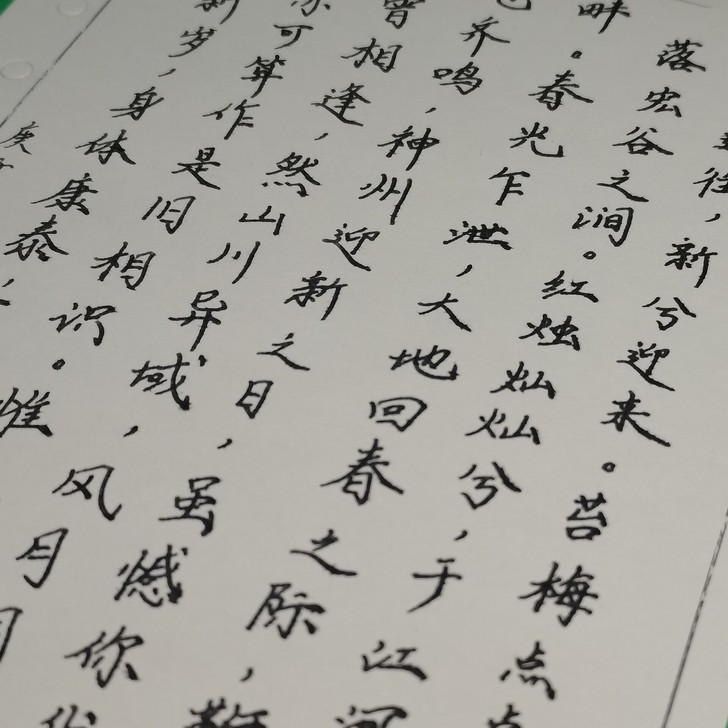 往，新兮迎来。苔梅点点
落宏谷之涧。红烛灿灿兮，于江河
畔。春光乍泄，大地回春之际，
齐鸣，神州迎新之日，虽憾你
曾相逢，然山川异域，风月同
你可算作是旧相识。惟
新岁，身体康泰，
庚